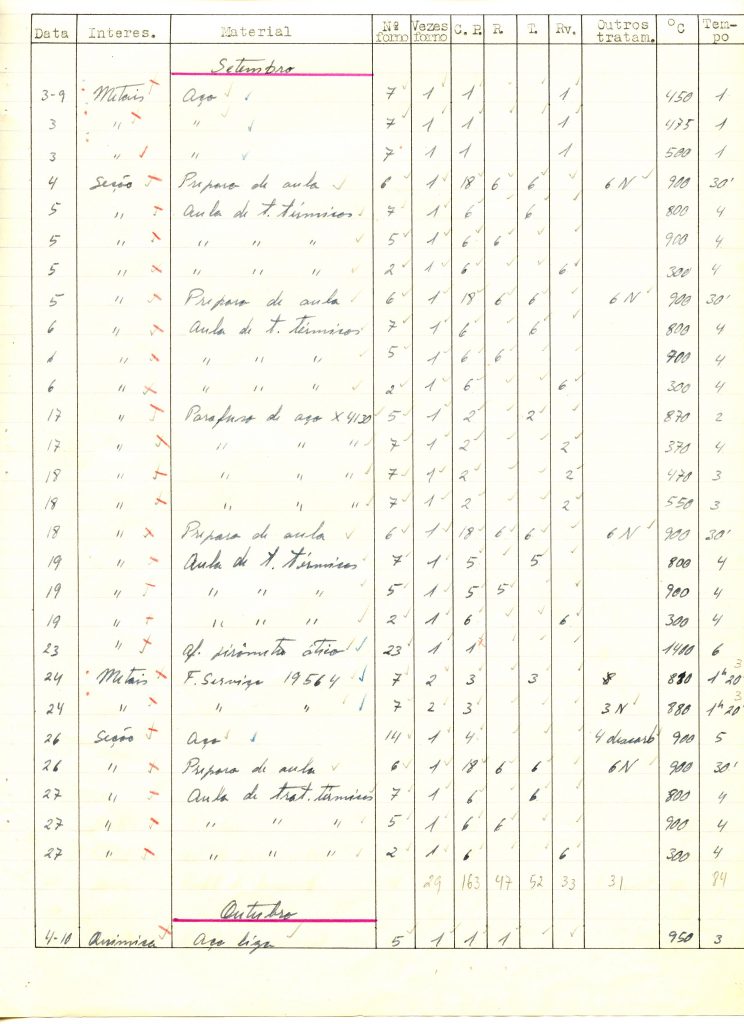 Data Interes. Material Nº forno Vezes forno C. P. R. T. Rv. Outros tratam. °C Tempo
Setembro
3-9 Metais Aço 7 1 1 1 450 1
3 " " 7 1 1 1 475 1
3 " " 7 1 1 1 500 1
4 Seção Preparo de aula 6 1 18 6 6 6 N 900 30'
5 " Aula de t. térmicos 7 1 6 6 800 4
5 " " " " 5 1 6 6 900 4
5 " " " " 2 1 6 6 300 4
5 " Preparo de aula 6 1 18 6 6 6 N 900 30'
6 " Aula de t. térmicos 7 1 6 6 800 4
6 " " " " 5 1 6 6 900 4
6 " " " " 2 1 6 6 300 4
17 " Parafuso de aço X 4130 5 1 2 2 870 2
17 " " " " 7 1 2 2 370 4
18 " " " " 7 1 2 2 470 3
18 " " " " 7 1 2 2 550 3
18 " Preparo de aula 6 1 18 6 6 6 N 900 30'
19 " Aula de t. térmicos 7 1 5 5 800 4
19 " " " " 5 1 5 5 900 4
19 " " " " 2 1 6 6 300 4
23 " Af. pirômetro ótico 23 1 1 1400 6
24 Metais F. Serviço 19564 7 2 3 3 1h 20 3
24 " " " 7 2 3 3 N 880 1h 20 3
26 Seção Aço 14 1 4 4 descarb 900 5
26 " Preparo de aula 6 1 18 6 6 6 N 900 30'
27 " Aula de trat. térmicos 7 1 6 6 800 4
27 " " " " 5 1 6 6 900 4
27 " " " " 2 1 6 6 300 4
29 163 47 52 33 31 84
Outubro
4-10 Química Aço liga 5 1 1 1 950 3